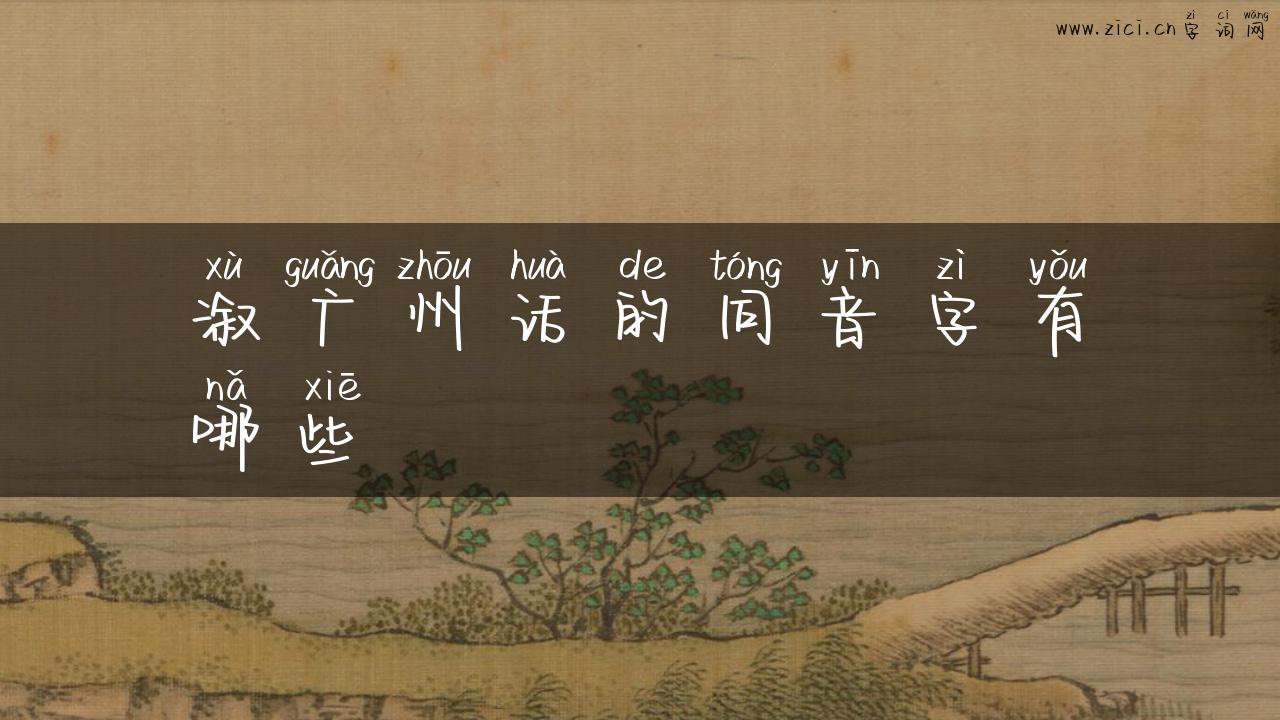 zì cí wǎng
www.zici.cn 字词网
xù guǎng zhōu huà de tóng yīn zì yǒu
溆广州话的同音字有
nǎ xiē
哪些